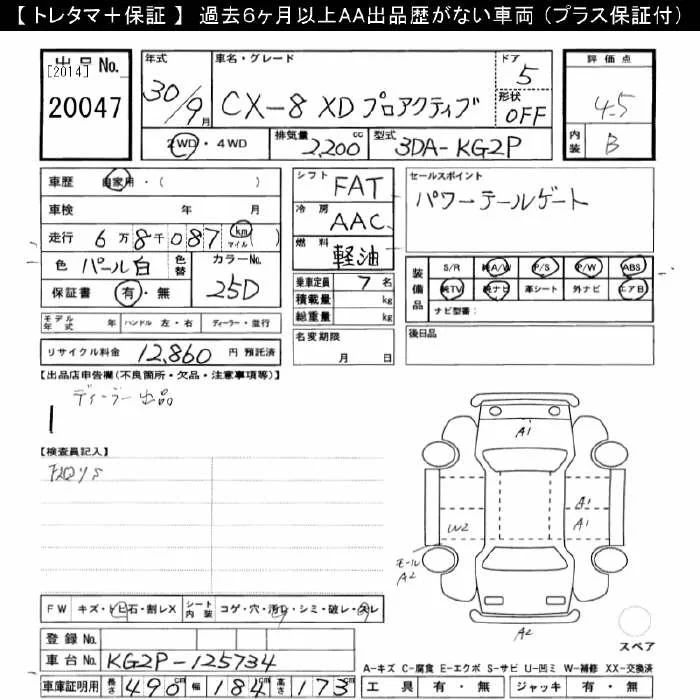 【 トレタマ＋保証 】 過去６ヶ月以上ＡＡ出品歴がない車両（プラス保証付）
出品 No.
[2014]
20047
年式
30/9月
車名・グレード
CX-8 XD プロアクティブ
ドア
5
形状
OFF
評価点
4.5
内装
B
2WD・4WD
排気量
2,200 cc
型式
3DA-KG2P
車歴 自家用・( )
車検 年 月
走行 6万8千087 km マイル ( )
色 パール白 色替 カラーNo. 25D
保証書 有・無
シフト FAT
冷房 AAC
燃料 軽油
乗車定員 7 名
積載量 kg
総重量 kg
セールスポイント
パワーテールゲート
装備品
S/R 純A/W P/S P/W ABS
純TV 純ナビ 革シート 外ナビ エアB
ナビ型番：
モデル年式 年 ハンドル 左・右 ディーラー・並行
リサイクル料金 12,860 円 預託済
名変期限
月 日
後日品
【出品店申告欄(不良箇所・欠品・注意事項等)】
ディーラー出品
【検査員記入】
A1
A1
A1
W2
モール
A2
A2
スペア
FW キズ・トビ石・割レX シート内装 コゲ・穴・汚レ・シミ・破レ・スレ
登録 No.
車台 No. KG2P-125734
車庫証明用 長さ 490 cm 幅 184 cm 高さ 173 cm
A-キズ C-腐食 E-エクボ S-サビ U-凹ミ W-補修 XX-交換済
工具 有・無 ジャッキ 有・無